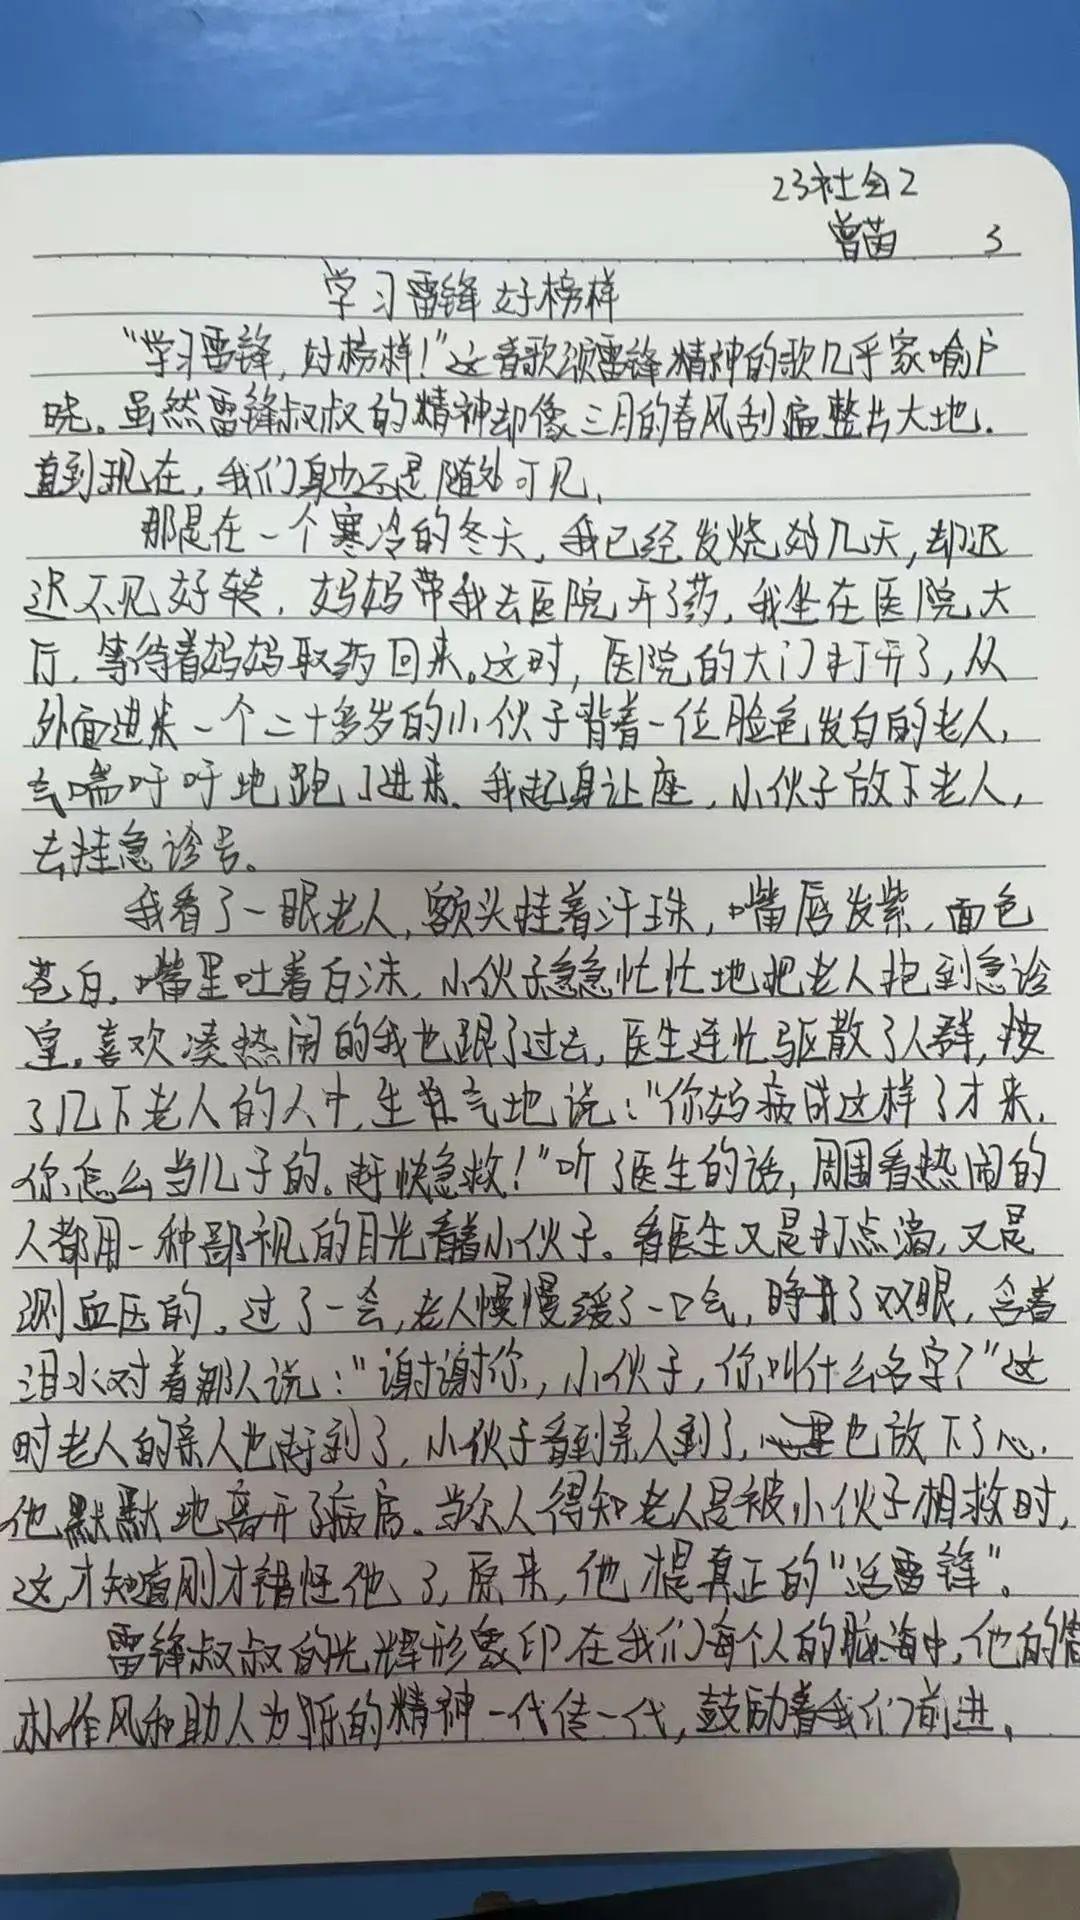 23社会2
曾茵 3
学习雷锋好榜样
“学习雷锋,好榜样!”这首歌颂雷锋精神的歌几乎家喻户
晓。虽然雷锋叔叔的精神却像三月的春风刮遍整片大地.
直到现在,我们身边还是随处可见、
那是在一个寒冷的冬天,我已经发烧好几天,却迟
迟不见好转,妈妈带我去医院开了药,我坐在医院大
厅,等待着妈妈取药回来。这时,医院的大门打开了,从
外面进来一个二十多岁的小伙子背着一位脸色发白的老人,
气喘吁吁地跑了进来.我起身让座,小伙子放下老人,
去挂急诊号。
我看了一眼老人,额头挂着汗珠,嘴唇发紫,面色
苍白,嘴里吐着白沫,小伙子急急忙忙地把老人抱到急诊
室,喜欢凑热闹的我也跟了过去,医生连忙驱散了人群,按
了几下老人的人中,生气地说:“你妈病成这样了才来,
你怎么当儿子的。赶快急救!”听了医生的话,周围看热闹的
人都用一种鄙视的目光看着小伙子。看医生又是打点滴,又是
测血压的。过了一会,老人慢慢缓了一口气,睁开了双眼,含着
泪水对着那人说:“谢谢你,小伙子,你叫什么名字?”这
时老人的亲人也赶到了,小伙子看到亲人到了,心里也放下了心.
他默默地离开了病房。当众人得知老人是被小伙子相救时,
这才知道刚才错怪他了,原来,他才是真正的“活雷锋”。
雷锋叔叔的光辉形象印在我们每个人的脑海中,他的
朴作风和助人为乐的精神一代传一代,鼓励着我们前进、